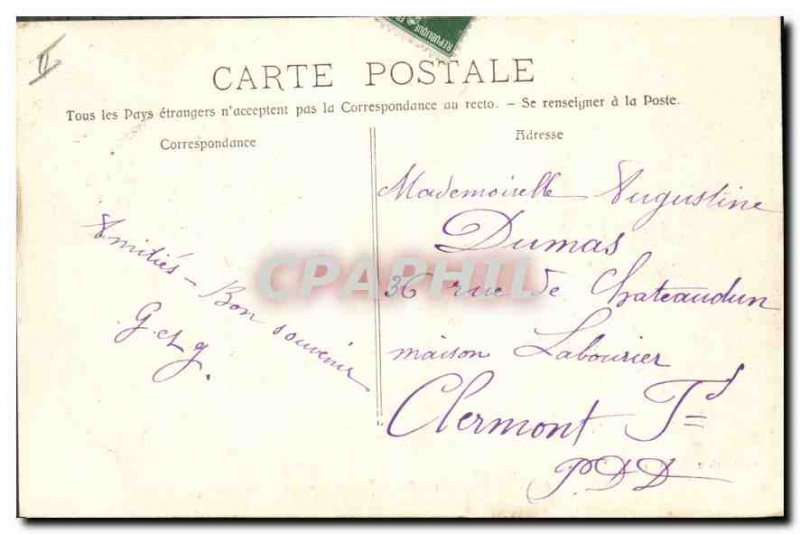 II
RÉPUBLIQUE
CARTE POSTALE
Tous les Pays étrangers n'acceptent pas la Correspondance au recto. - Se renseigner à la Poste.
Correspondance
Amitiés - Bon souvenir
G et g.
Adresse
Mademoiselle Augustine
Dumas
36 rue de Chateaudun
maison Labourier
Clermont Fd
P.D.D
CPAPHIL